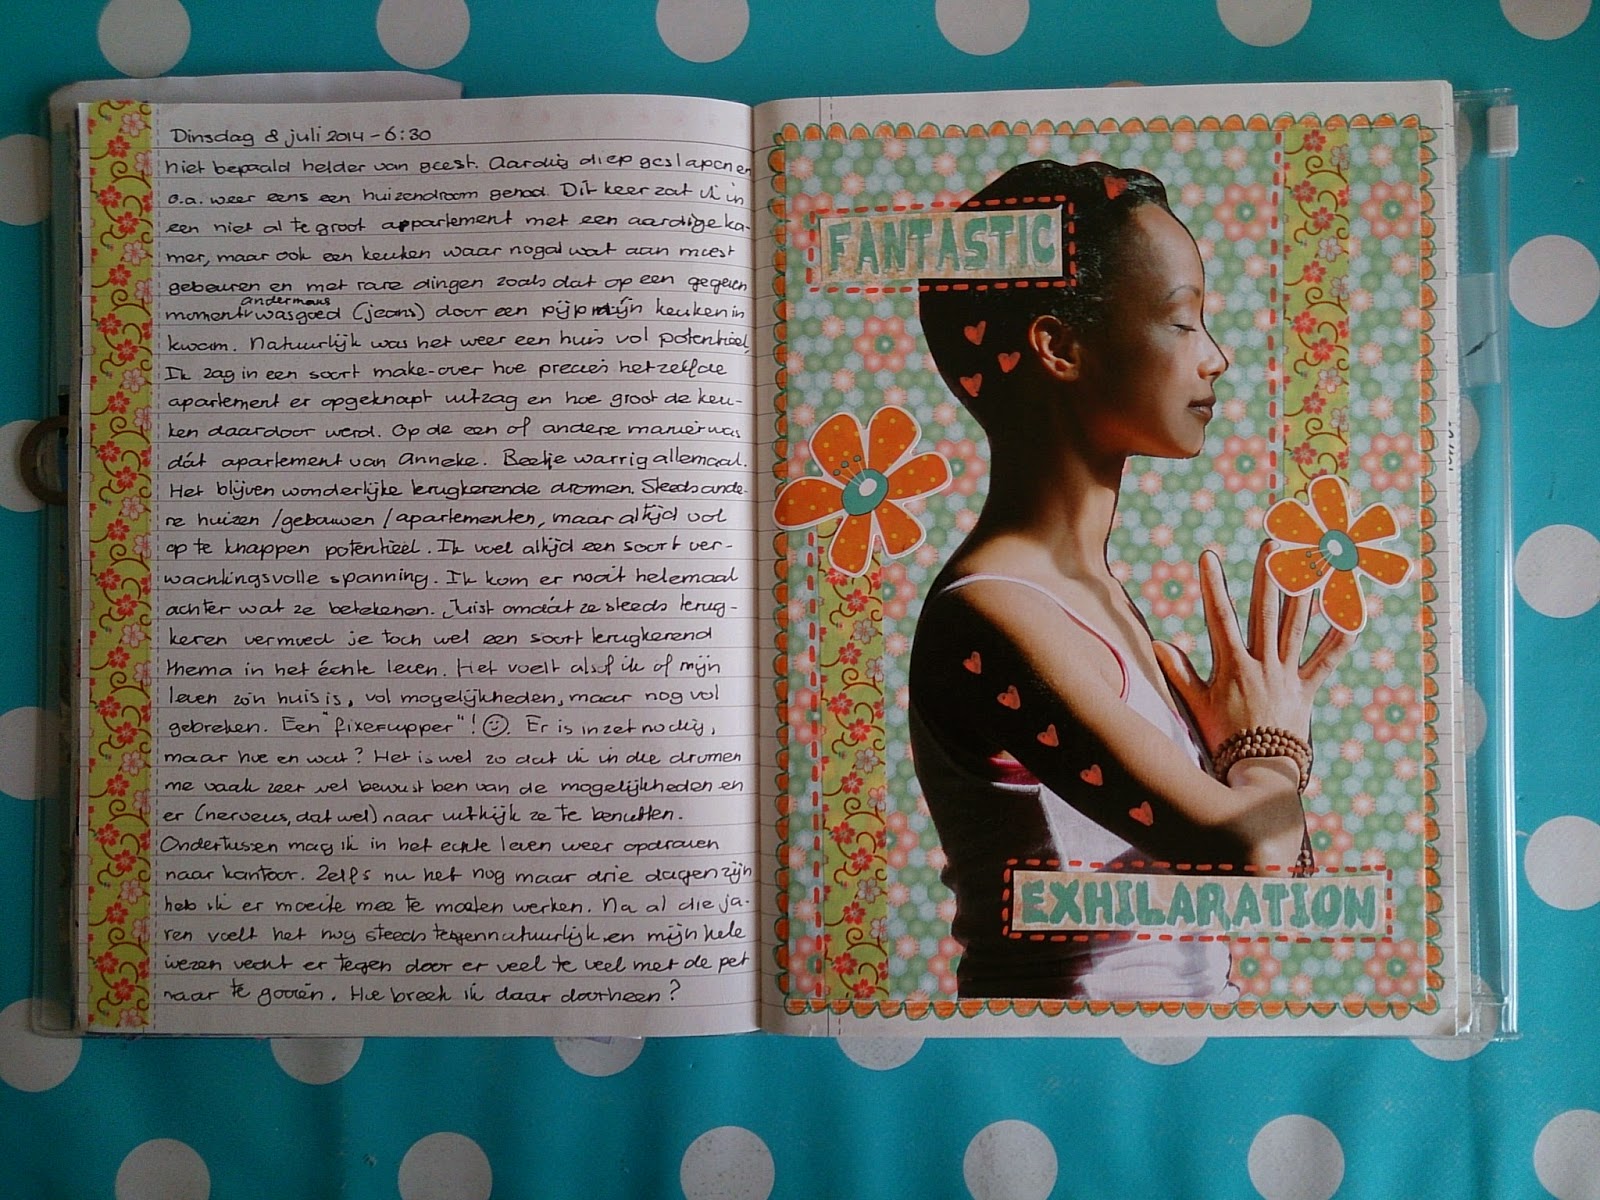 Dinsdag 8 juli 2014 - 6:30
niet bepaald helder van geest. Aardig diep geslapen en
o.a. weer eens een huizendroom gehad. Dit keer zat ik in
een niet al te groot appartement met een aardige ka-
mer, maar ook een keuken waar nogal wat aan moest
gebeuren en met rare dingen zoals dat op een gegeven
moment andermans wasgoed (jeans) door een pijp mijn keuken in
kwam. Natuurlijk was het weer een huis vol potentieel,
Ik zag in een soort make-over hoe precies hetzelfde
apartement er opgeknapt uitzag en hoe groot de keu-
ken daardoor werd. Op de een of andere manier was
dát apartement van Anneke. Beetje warrig allemaal.
Het blijven wonderlijke terugkerende dromen. Steeds ande-
re huizen /gebouwen /apartementen, maar altijd vol
op te knappen potentieel. Ik voel altijd een soort ver-
wachtingsvolle spanning. Ik kom er nooit helemaal
achter wat ze betekenen. Juist omdát ze steeds terug-
keren vermoed je toch wel een soort terugkerend
thema in het échte leven. Het voelt alsof ik of mijn
leven zo'n huis is, vol mogelijkheden, maar nog vol
gebreken. Een "fixerupper"! ☺. Er is inzet nodig,
maar hoe en wat? Het is wel zo dat ik in die dromen
me vaak zeer wel bewust ben van de mogelijkheden en
er (nerveus, dat wel) naar uitkijk ze te benutten.
Ondertussen mag ik in het echte leven weer opdraven
naar kantoor. Zelfs nu het nog maar drie dagen zijn
heb ik er moeite mee te moeten werken. Na al die ja-
ren voelt het nog steeds tegennatuurlijk en mijn hele
wezen vecht er tegen door er veel te veel met de pet
naar te gooien. Hoe breek ik daar doorheen?
FANTASTIC
EXHILARATION